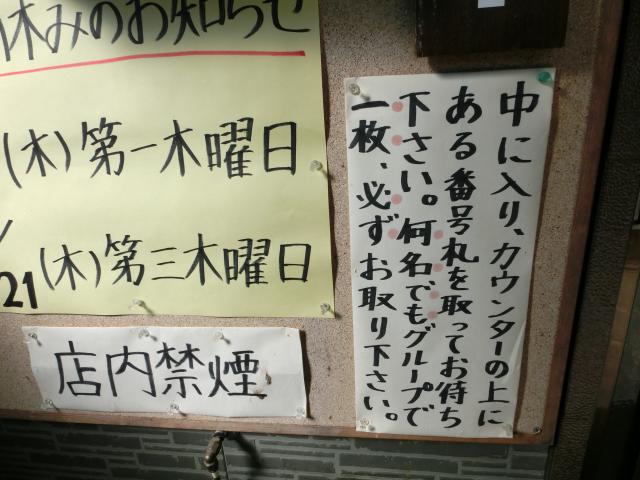 休みのお知らせ
(木)第一木曜日
21(木)第三木曜日
店内禁煙
中に入り、カウンターの上に
ある番号札を取ってお待ち
下さい。何名でもグループで
一枚、必ずお取り下さい。